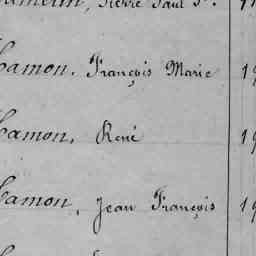 Pierre Paul
amon, François Marie 19
amon, René 19
amon, Jean François 19